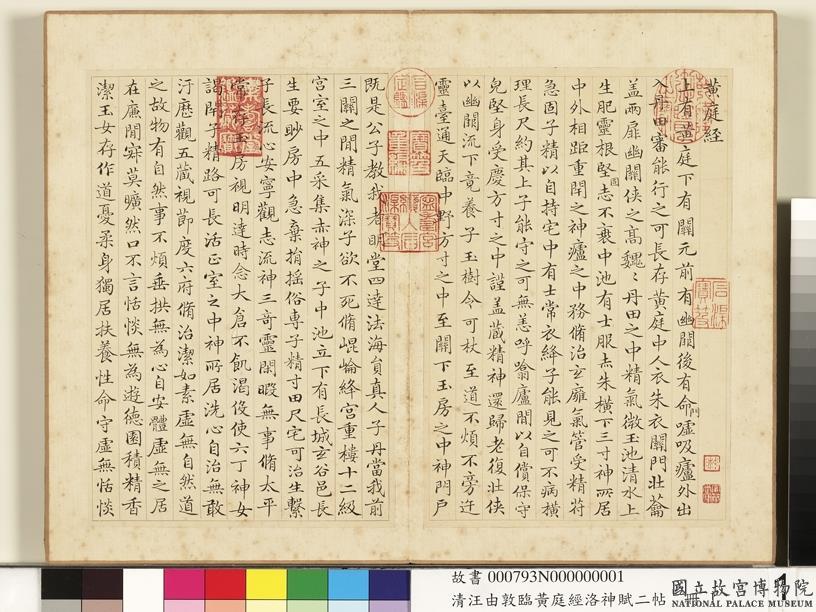 黃庭經
上有黃庭下有關元前有幽闕後有命門噓吸廬外出
入丹田審能行之可長存黃庭中人衣朱衣關門壯蘥
蓋兩扉幽關俠之高巍巍丹田之中精氣微玉池清水上
生肥靈根堅固志不衰中池有士服赤朱橫下三寸神所居
中外相距重閉之神廬之中務脩治玄廱氣管受精符
急固子精以自持宅中有士常衣絳子能見之可不病橫
理長尺約其上子能守之可無恙呼翕廬間以自償保守
皃堅身受慶方寸之中謹蓋藏精神還歸老復壯俠
以幽闕流下竟養子玉樹令可杖至道不煩不旁迕
靈臺通天臨中野方寸之中至關下玉房之中神門戶
既是公子教我者明堂四達法海員真人子丹當我前
三關之間精氣深子欲不死脩崐崘絳宮重樓十二級
宮室之中五采集赤神之子中池立下有長城玄谷邑長
生要眇房中急棄捐搖俗專子精寸田尺宅可治生繫
子長流心安寧觀志流神三奇靈閑暇無事脩太平
常存玉房視明達時念大倉不飢渴役使六丁神女
謁閉子精路可長活正室之中神所居洗心自治無敢
汙歷觀五藏視節度六府脩治潔如素虛無自然道
之故物有自然事不煩垂拱無為心自安體虛無之居
在廉閒寂莫曠然口不言恬惔無為遊德園積精香
潔玉女存作道憂柔身獨居扶養性命守虛無恬惔
故書 000793N000000001
清汪由敦臨黃庭經洛神賦二帖 冊
1
國立故宮博物院
NATIONAL PALACE MUSEUM